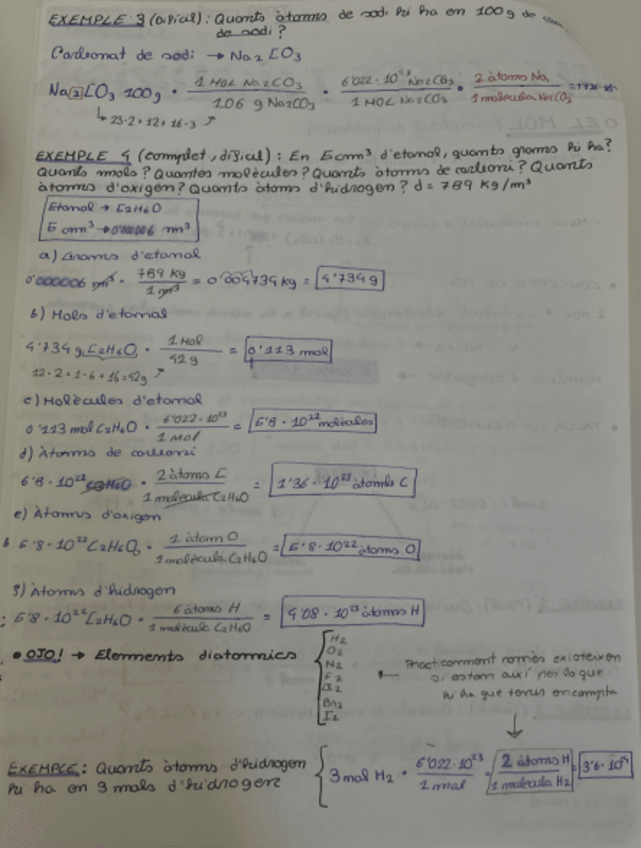 EXEMPLE 3 (oficial): Quants àtoms de sodi hi ha en 100g de
de sodi?
Carbonat de sodi → Na2CO3
Na2CO3 100g · 1 MOL Na2CO3 / 106 g Na2CO3 · 6'022·10²³ Na2CO3 / 1 MOL Na2CO3 · 2 àtoms Na / 1 molècula Na2CO3
↳ 23·2+12+16·3 ↗
EXEMPLE 4 (complet, difícil): En 6cm³ d'etanol, quants grams hi ha?
Quants mols? Quantes molècules? Quants àtoms de carboni? Quants
àtoms d'oxigen? Quants àtoms d'hidrogen? d= 789 Kg/m³
Etanol → C2H6O
6 cm³ → 0'000006 m³
a) Grams d'etanol
0'000006 m³ · 789 kg / 1 m³ = 0'004734 kg = 4'734g
b) Mols d'etanol
4'734 g C2H6O · 1 Mol / 42 g = 0'113 mol
12·2+1·6+16=42g ↗
c) Molècules d'etanol
0'113 mol C2H6O · 6'022·10²³ / 1 Mol = 6'8·10²² molècules
d) Àtoms de carboni
6'8·10²² C2H6O · 2 àtoms C / 1 molècula C2H6O = 1'36·10²³ àtoms C
e) Àtoms d'oxigen
6'8·10²² C2H6O · 1 àtom O / 1 molècula C2H6O = 6'8·10²² àtoms O
f) Àtoms d'hidrogen
6'8·10²² C2H6O · 6 àtoms H / 1 molècula C2H6O = 4'08·10²³ àtoms H
• OJO! → Elements diatomics
H2
O2
N2
F2
Cl2
Br2
I2
← Practicament només existeixen
si estan així per lo que
hi ha que tenir en compte
↓
EXEMPLE: Quants àtoms d'hidrogen
hi ha en 3 mols d'hidrogen
3 mol H2 · 6'022·10²³ / 1 mol · 2 àtoms H / 1 molècula H2